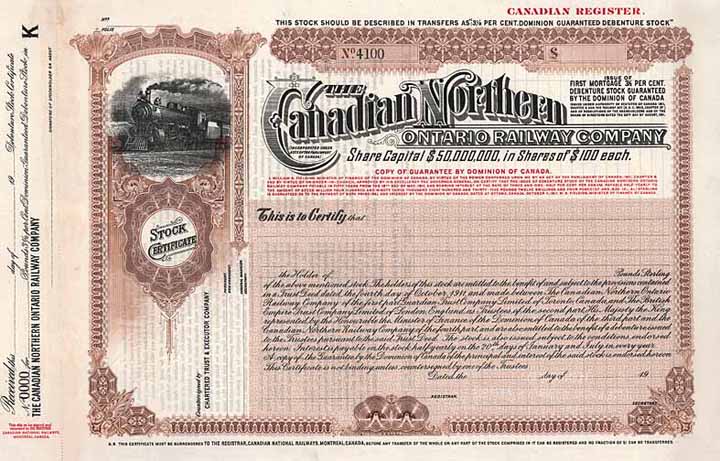 CANADIAN REGISTER.
THIS STOCK SHOULD BE DESCRIBED IN TRANSFERS AS "3½ PER CENT. DOMINION GUARANTEED DEBENTURE STOCK"
No 4100
$
ISSUE OF
FIRST MORTGAGE 3½ PER CENT.
DEBENTURE STOCK GUARANTEED
BY THE DOMINION OF CANADA.
THE
Canadian Northern
ONTARIO RAILWAY COMPANY
Share Capital $50,000,000, in Shares of $100 each.
COPY OF GUARANTEE BY DOMINION OF CANADA.
This is to Certify that
the Holder of Pounds Sterling
of the above mentioned stock. The holders of this stock are entitled to the benefit of and subject to the provisions contained
in a Trust Deed dated the fourth day of October, 1911 and made between The Canadian Northern Ontario
Railway Company of the first part, Guardian Trust Company, Limited of Toronto, Canada, and The British
Empire Trust Company, Limited of London, England, as Trustees of the second part, His Majesty the King
represented by the Honourable the Minister of Finance of the Dominion of Canada of the third part and The
Canadian Northern Railway Company of the fourth part and are also entitled to the benefit of a debenture issued
to the Trustees pursuant to the said Trust Deed. The stock is also issued subject to the conditions endorsed
hereon. Interest is payable on the stock half yearly on the 20th days of January and July in every year.
A copy of the Guarantee by the Dominion of Canada of the principal and interest of the said stock is endorsed hereon
This Certificate is not binding unless countersigned by one of the Trustees
Dated the day of 19
REGISTRAR.
N.B. THIS CERTIFICATE MUST BE SURRENDERED TO THE REGISTRAR, CANADIAN NATIONAL RAILWAYS, MONTREAL, CANADA, BEFORE ANY TRANSFER OF THE WHOLE OR ANY PART OF THE STOCK COMPRISED IN IT CAN BE REGISTERED AND NO FRACTION OF $1 CAN BE TRANSFERRED.
STOCK
CERTIFICATE
Countersigned by
CHARTERED TRUST & EXECUTOR COMPANY
K
Received this day of 19 Debenture Stock Certificate
No 0000 for Pounds 3½ per Cent Dominion Guaranteed Debenture Stock in
THE CANADIAN NORTHERN ONTARIO RAILWAY COMPANY
This slip to be signed and
returned to the REGISTRAR
CANADIAN NATIONAL RAILWAYS,
MONTREAL, CANADA.